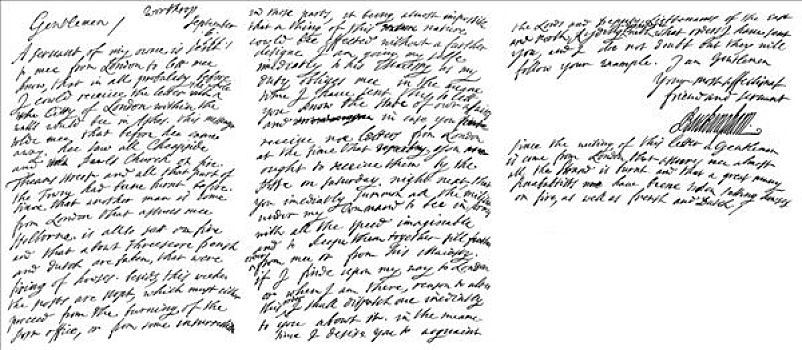 Worthorp
September
6
Gentlemen /
A servant of my owne is
to mee from London to let mee
know, that in all probability before
I could receive the letter
the Citty of London within the
walls would be in Ashes. this messenger
tolde mee, that before hee came
away, hee saw all Cheapside
and Pauls Church on fire.
Theams street and all that part of
the Towne had beene burnt before.
since that another man is come
from London that assures mee
Holborne is allso sett on fire
and that about threescore french
and dutch are taken, that were
firing of houses. besides this
the posts are stopt, which must either
proceed from the burning of the
post office, or from some insurrection
in those parts, it being almost impossible
that a thing of this nature
could bee effected without a further
designe. I am going my selfe
imediatly to his Majesty as my
duty obliges mee in the
time I have sent this to lett
you know the state of our
and in case you
receive noe letters from London
at the time that you
ought to receive them by the
on Saturday night next, that
you imediatly summon all the militia
under my Command to bee in
with all the speed imaginable
and to keepe them together till further
order from mee or from his Majesty.
if I finde upon my way to London
or when I am there, reason to alter
this, I shall dispatch one imediatly
to you about it. in the meane
time I desire you to acquaint
the Lords and Lieutenants of the east
and north what orders I have sent
you, and I doe not doubt but they will
follow your example. I am Gentlemen
Your most affectionat
friend and servant
Buckingham
since the writing of this letter a Gentleman
is come from London, that assures mee almost
all the strand is burnt and that a great many
have beene taken
on fire, as well as french and Dutch